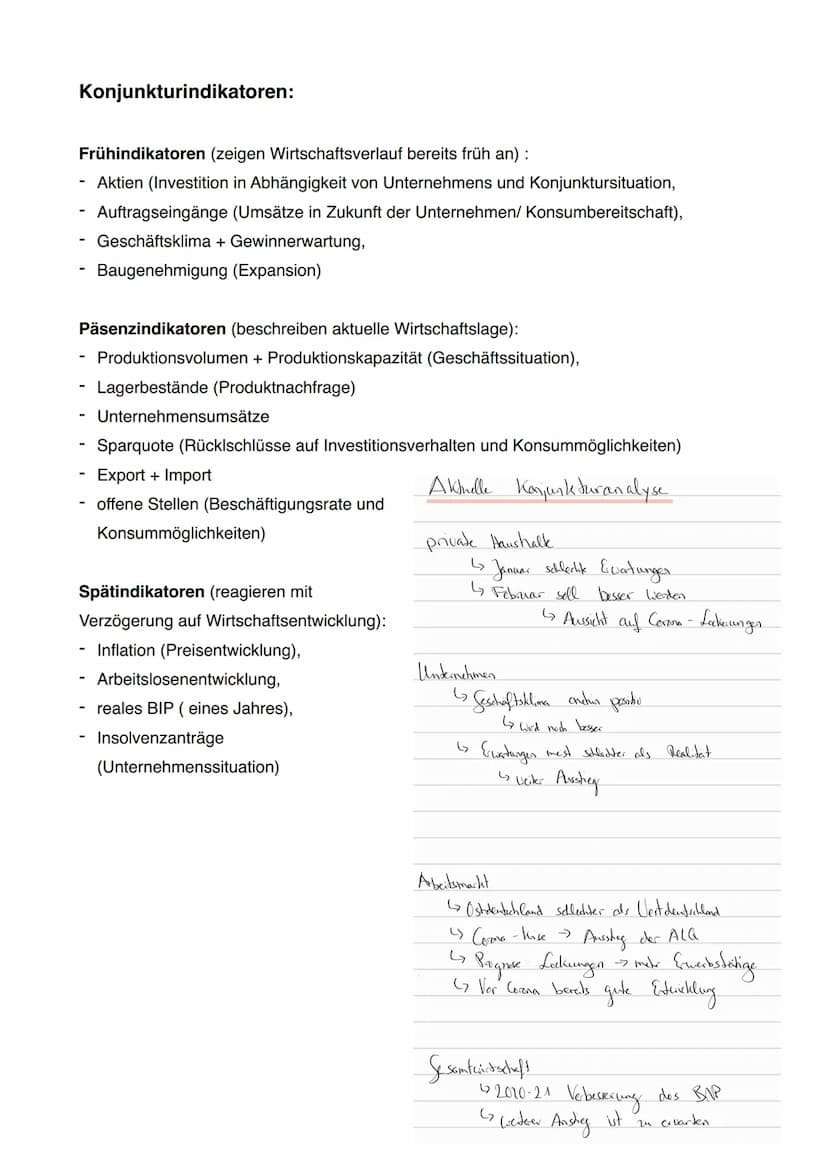 Konjunkturindikatoren:
Frühindikatoren (zeigen Wirtschaftsverlauf bereits früh an) :
- Aktien (Investition in Abhängigkeit von Unternehmens und Konjunktursituation,
- Auftragseingänge (Umsätze in Zukunft der Unternehmen/ Konsumbereitschaft),
- Geschäftsklima + Gewinnerwartung,
- Baugenehmigung (Expansion)
Päsenzindikatoren (beschreiben aktuelle Wirtschaftslage):
- Produktionsvolumen + Produktionskapazität (Geschäftssituation),
- Lagerbestände (Produktnachfrage)
- Unternehmensumsätze
- Sparquote (Rücklschlüsse auf Investitionsverhalten und Konsummöglichkeiten)
- Export + Import
- offene Stellen (Beschäftigungsrate und
Konsummöglichkeiten)
Spätindikatoren (reagieren mit
Verzögerung auf Wirtschaftsentwicklung):
- Inflation (Preisentwicklung),
- Arbeitslosenentwicklung,
- reales BIP ( eines Jahres),
- Insolvenzanträge
(Unternehmenssituation)
Aktuelle Konjunkturanalyse
private Haushalte
↳ Januar schlechte Erwartungen
↳ Februar soll besser werden
↳ Aussicht auf Corona - Lockerungen
Unternehmen
↳ Geschäftsklima positiv
↳ wird noch besser
↳ Erwartungen meist schlechter als Realität
↳ weiter Anstieg
Arbeitsmarkt
↳ Ostdeutschland schlechter als Westdeutschland
↳ Corona - Krise → Anstieg der ALQ
↳ Prognose Lockerungen → mehr Erwerbstätige
↳ Vor Corona bereits gute Entwicklung
Gesamtwirtschaft
↳ 2020-21 Verbesserung des BIP
↳ weiterer Anstieg ist zu erwarten